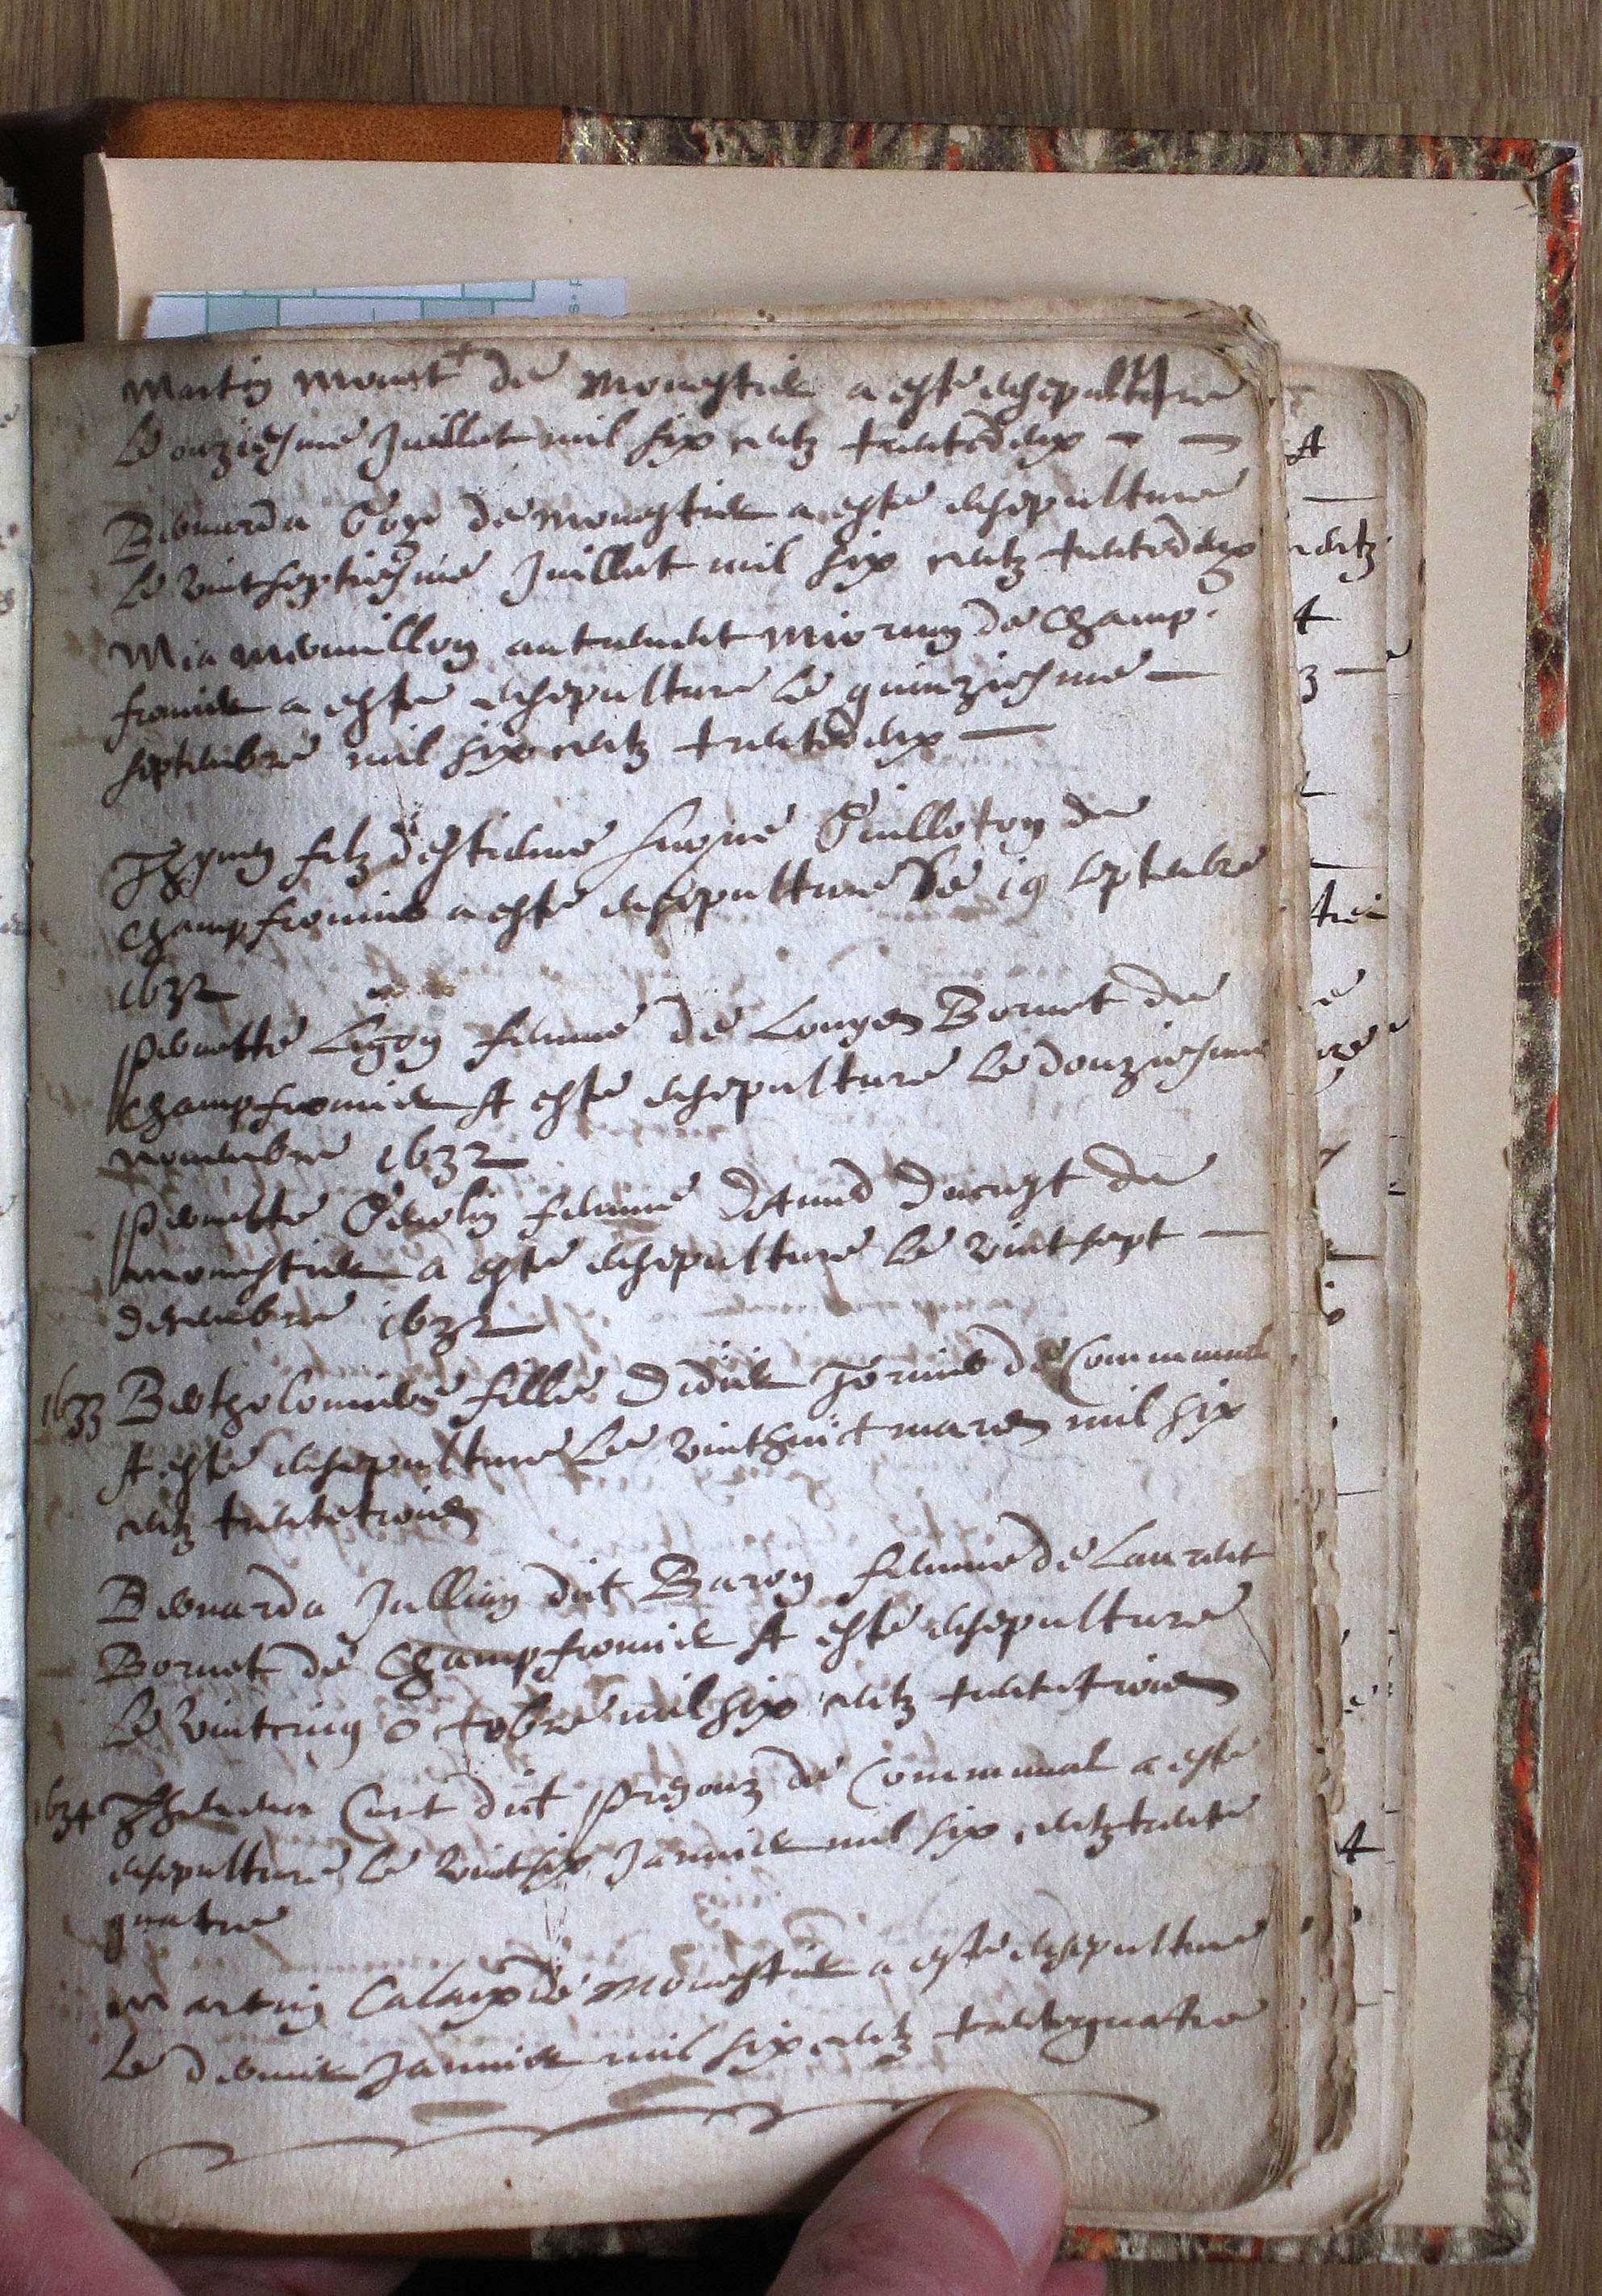 Martin Monet de Monestier a esté ensepulturé
Le onziesme Juillet mil six centz trentedeux
Bernarda Goye de Monestier a esté ensepulture
Le vintseptiesme Juillet mil six centz trentedeux
Mia autrement de Champ-
fromier a esté ensepulture le quinziesme
septembre mil six centz trentedeux
filz d'estienne Guilloton de
Champfromier a esté ensepulture Le 19 septembre
1632
Pernette Ligon femme de Louys Bornet de
Champfromier A esté ensepulture Le douziesme
novembre 1632
Pernette Genolin femme Ducrest de
Monestier a esté ensepulture Le vintsept
decembre 1632
1633 Bertholomier fille Didier Tornier de Communal
A esté ensepulture Le vinthuict mars mil six
centz trentetrois
Bernarda Jullian dit Baron femme de Laurent
Bornet de Champfromier A esté ensepulture
Le vintcinq octobre mil six centz trentetrois
1634 Thevena Curt dit de Communal a esté
ensepulture Le vintsix Janvier mil six centz trente
quatre
Martin Calaix de Monestier a esté ensepulture
Le dernier Janvier mil six centz trentequatre